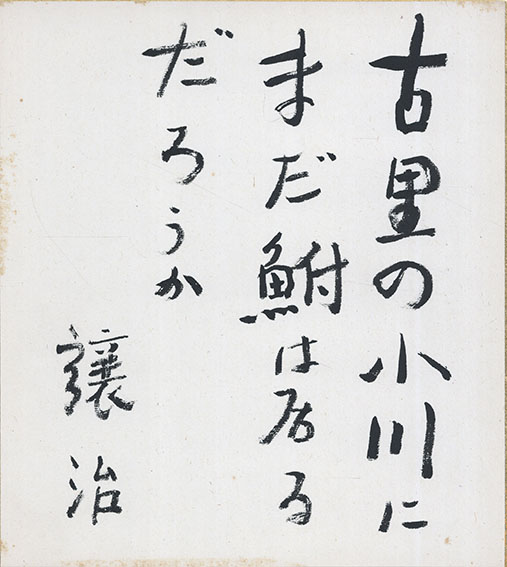 古里の小川に
まだ鮒は居る
だろうか
譲治